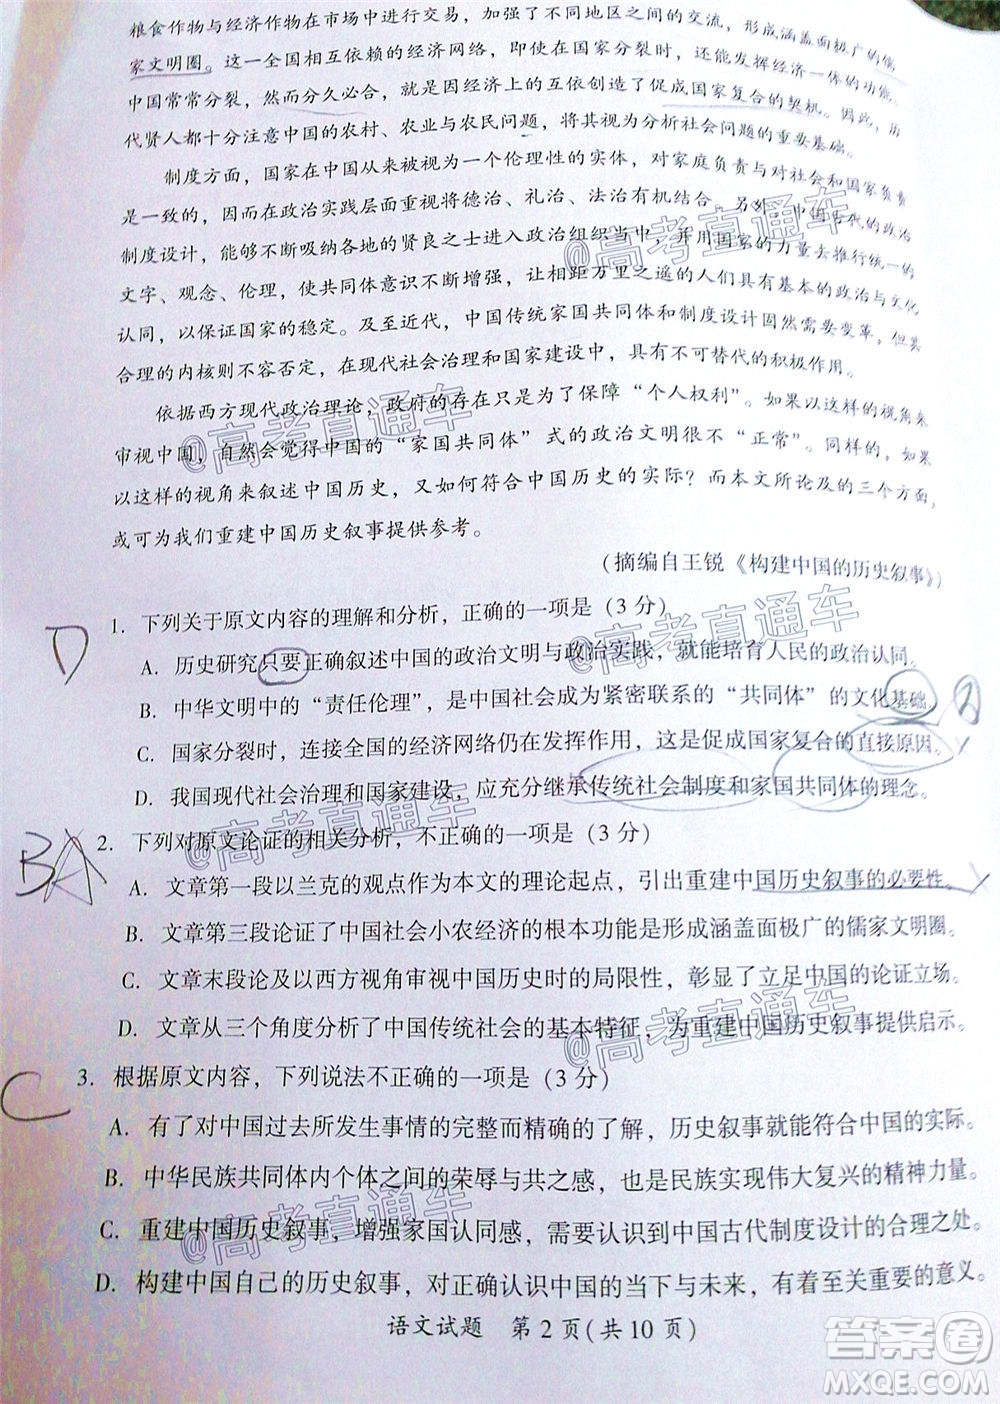 粮食作物与经济作物在市场中进行交易，加强了不同地区之间的交流，形成涵盖面极广的儒
家文明圈。这一全国相互依赖的经济网络，即使在国家分裂时，还能发挥经济一体的功能。
中国常常分裂，然而分久必合，就是因经济上的互依创造了促成国家复合的契机。因此，历
代贤人都十分注意中国的农村、农业与农民问题，将其视为分析社会问题的重要基础。
制度方面，国家在中国从来被视为一个伦理性的实体，对家庭负责与对社会和国家负责
是一致的，因而在政治实践层面重视将德治、礼治、法治有机结合。另外，中国古代的政治
制度设计，能够不断吸纳各地的贤良之士进入政治组织当中，并用国家的力量去推行统一的
文字、观念、伦理，使共同体意识不断增强，让相距万里之遥的人们具有基本的政治与文化
认同，以保证国家的稳定。及至近代，中国传统家国共同体和制度设计固然需要变革，但其
合理的内核则不容否定，在现代社会治理和国家建设中，具有不可替代的积极作用。
依据西方现代政治理论，政府的存在只是为了保障“个人权利”。如果以这样的视角来
审视中国，自然会觉得中国的“家国共同体”式的政治文明很不“正常”。同样的，如果
以这样的视角来叙述中国历史，又如何符合中国历史的实际？而本文所论及的三个方面，
或可为我们重建中国历史叙事提供参考。
（摘编自王锐《构建中国的历史叙事》）
1. 下列关于原文内容的理解和分析，正确的一项是（3 分）
D
A. 历史研究只要正确叙述中国的政治文明与政治实践，就能培育人民的政治认同。
B. 中华文明中的“责任伦理”，是中国社会成为紧密联系的“共同体”的文化基础。
C. 国家分裂时，连接全国的经济网络仍在发挥作用，这是促成国家复合的直接原因。
D. 我国现代社会治理和国家建设，应充分继承传统社会制度和家国共同体的理念。
2. 下列对原文论证的相关分析，不正确的一项是（3 分）
B
A. 文章第一段以兰克的观点作为本文的理论起点，引出重建中国历史叙事的必要性。
B. 文章第三段论证了中国社会小农经济的根本功能是形成涵盖面极广的儒家文明圈。
C. 文章末段论及以西方视角审视中国历史时的局限性，彰显了立足中国的论证立场。
D. 文章从三个角度分析了中国传统社会的基本特征，为重建中国历史叙事提供启示。
3. 根据原文内容，下列说法不正确的一项是（3 分）
C
A. 有了对中国过去所发生事情的完整而精确的了解，历史叙事就能符合中国的实际。
B. 中华民族共同体内个体之间的荣辱与共之感，是民族实现伟大复兴的精神力量。
C. 重建中国历史叙事，增强家国认同感，需要认识到中国古代制度设计的合理之处。
D. 构建中国自己的历史叙事，对正确认识中国的当下与未来，有着至关重要的意义。
语文试题 第 2 页（共 10 页）
@高考直通车
@高考直通车
@高考直通车
@高考直通车
@高考直通车
@高考直通车
答案圈
MXQE.COM